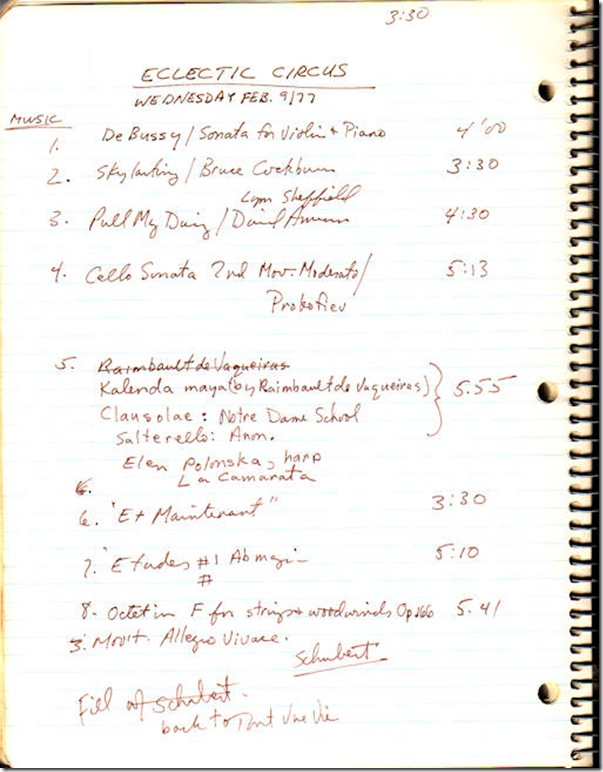 3:30
ECLECTIC CIRCUS
WEDNESDAY FEB. 9/77
MUSIC
1. DeBussy / Sonata for Violin + Piano 4'00
2. Skylarking / Bruce Cockburn 3:30
Lynn Sheffield
3. Pull My Daisy / David Amram 4:30
4. Cello Sonata 2nd Mov. Moderato/ 5:13
Prokofiev
5. Raimbault de Vaqueiras
Kalenda maya (by Raimbault de Vaqueiras) 5.55
Clausolae : Notre Dame School
Salterello: Anon.
Elen Polonska, harp
6. La Camarata
6. "Et Maintenant" 3:30
7. Etudes #1 Ab 5:10
#
8. Octet in F for strings + woodwinds Op.166 5.41
3. Mov't. Allegro Vivace.
Schubert
Fill Schubert.
back to Vie